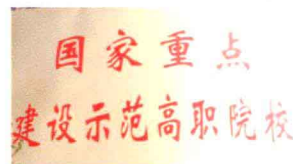 国家重点
建设示范高职院校